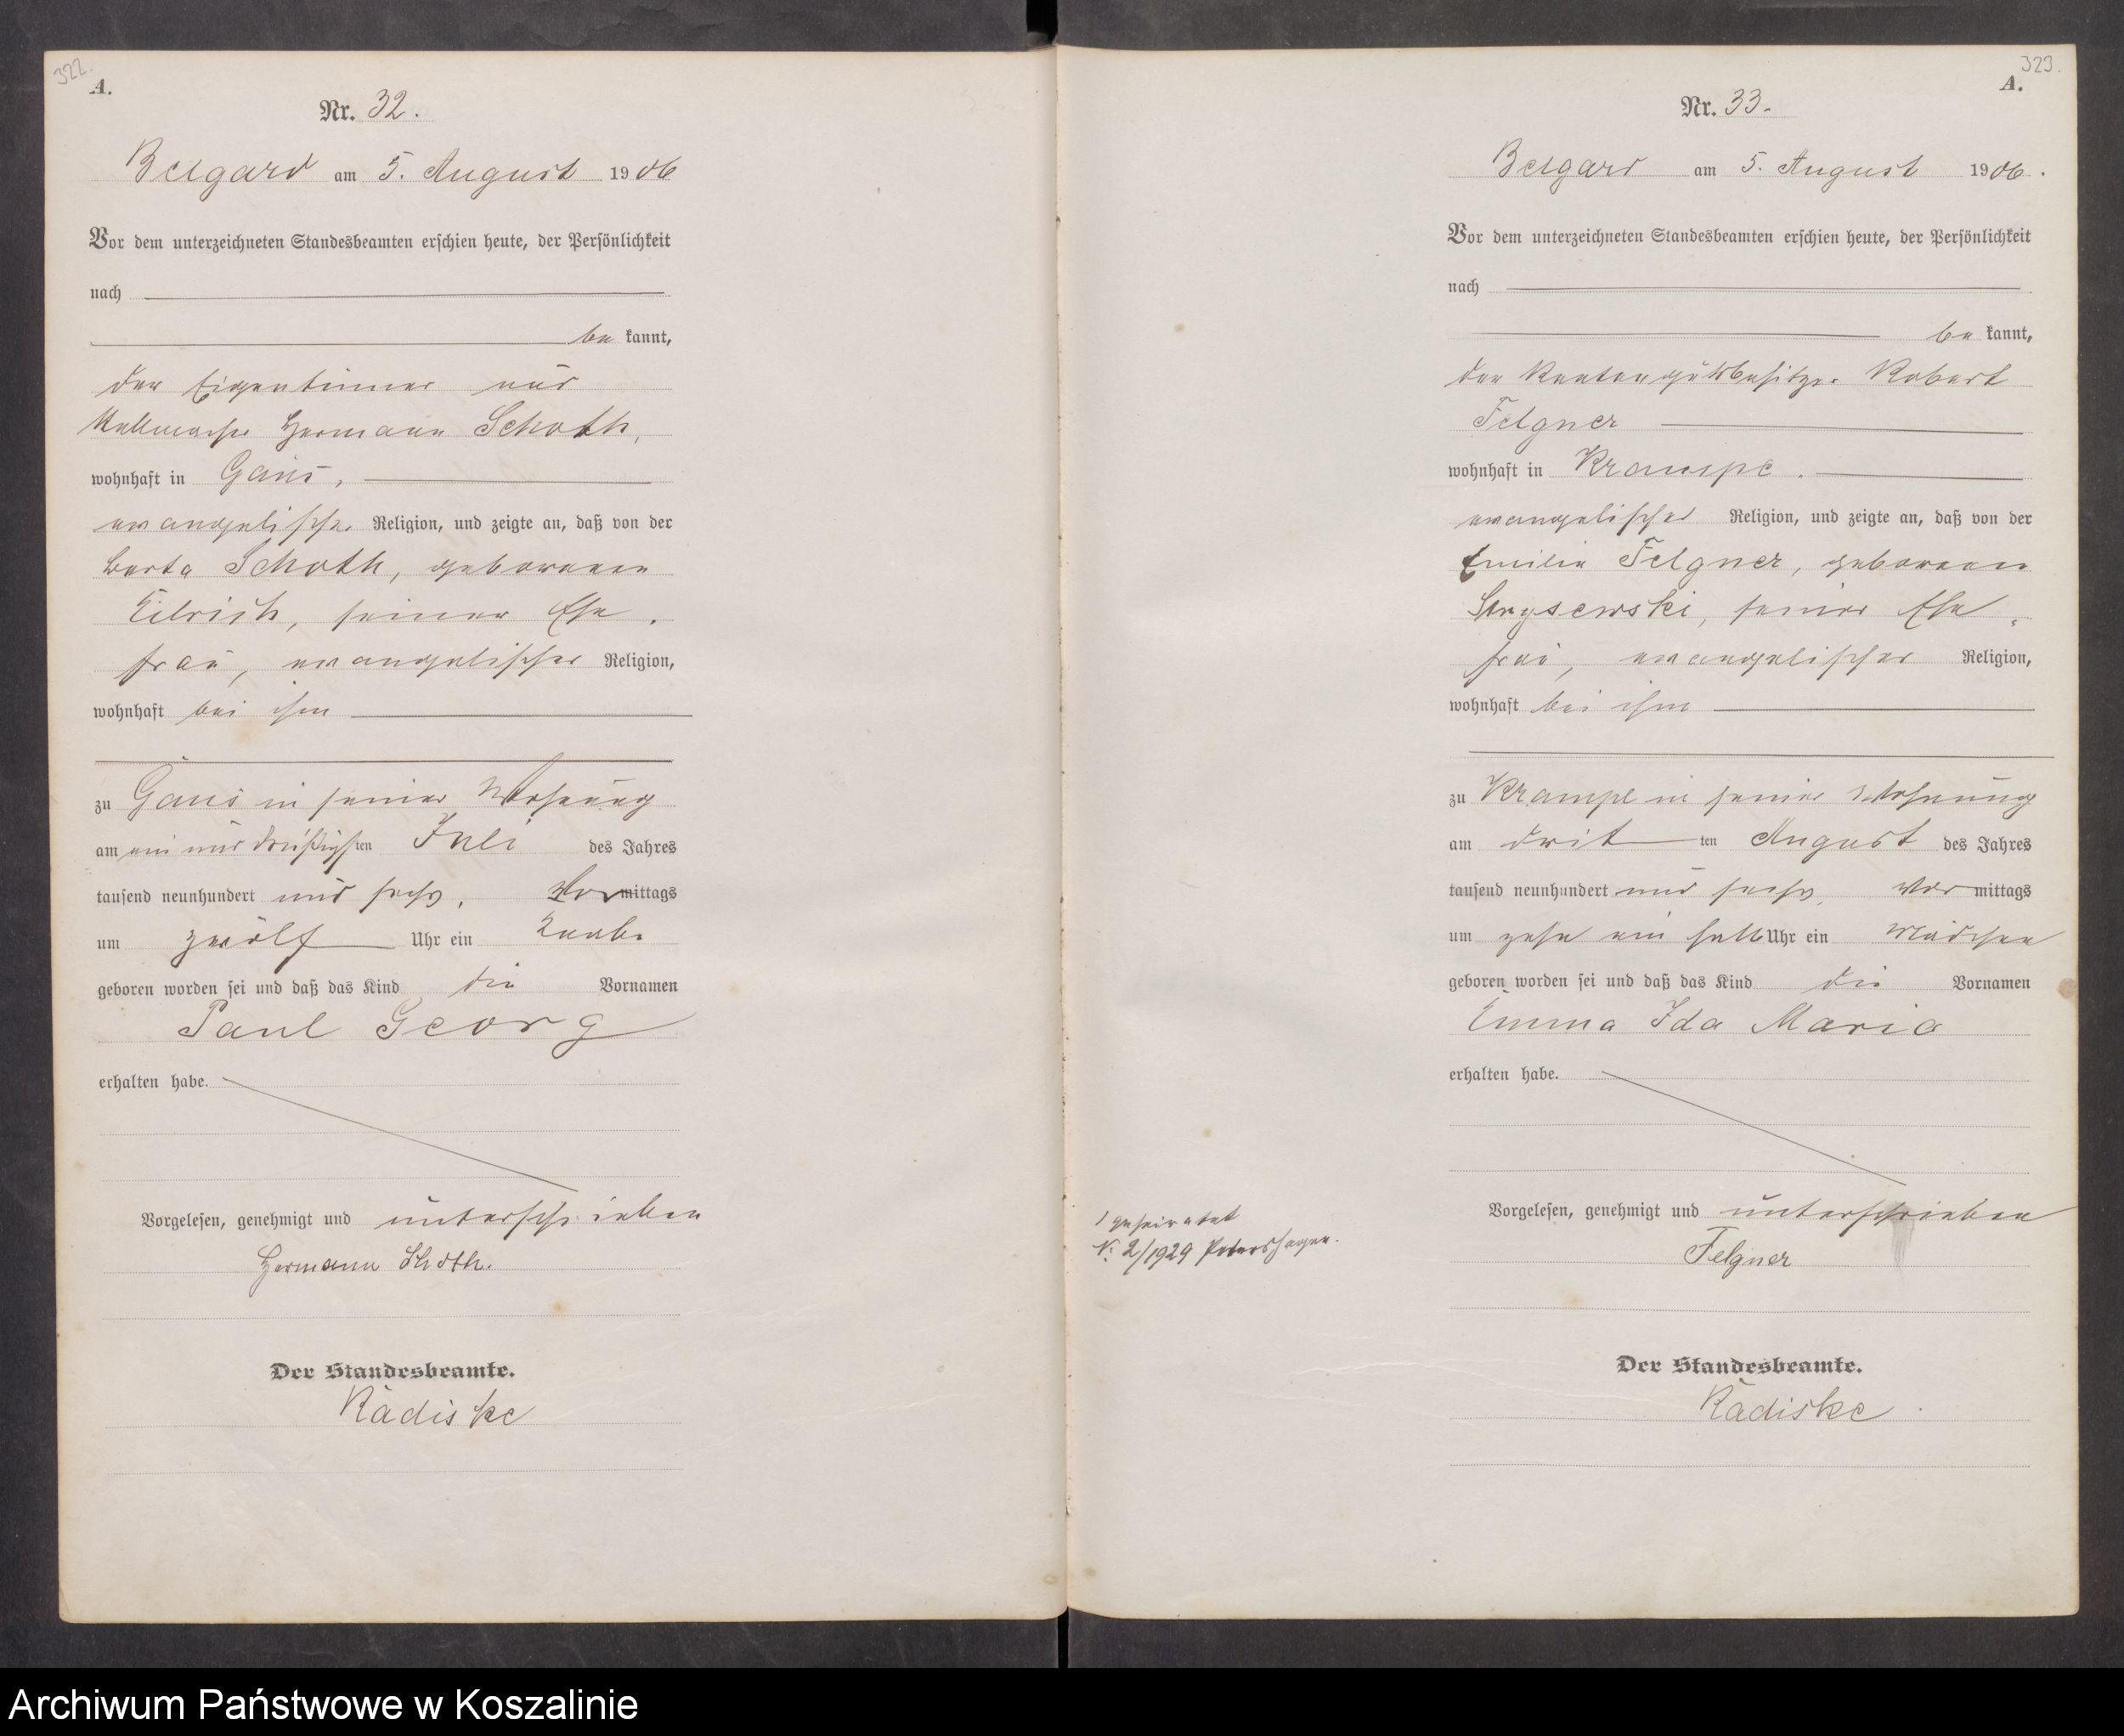 322.
A.
Nr. 32.
Belgard am 5. August 1906
Vor dem unterzeichneten Standesbeamten erschien heute, der Persönlichkeit
nach
be kannt,
der Eigentümer und
Hermann Schoth,
wohnhaft in Gans,
evangelischer Religion, und zeigte an, daß von der
Berta Schoth, geborenen
seiner Ehe
frau, evangelischer Religion,
wohnhaft bei ihm
zu Gans in seiner Wohnung
am ein und dreißigsten Juli des Jahres
tausend neunhundert und sechs, Vormittags
um zwölf Uhr ein Knabe
geboren worden sei und daß das Kind die Vornamen
Paul Georg
erhalten habe.
Vorgelesen, genehmigt und unterschrieben
Hermann Schoth.
Der Standesbeamte.
Rädiske
323.
A.
Nr. 33.
Belgard am 5. August 1906.
Vor dem unterzeichneten Standesbeamten erschien heute, der Persönlichkeit
nach
be kannt,
der Rentengutsbesitzer Robert
Felgner
wohnhaft in Krampe.
evangelischer Religion, und zeigte an, daß von der
Emilie Felgner, geborenen
seiner Ehe
frau, evangelischer Religion,
wohnhaft bei ihm
zu Krampe in seiner Wohnung
am dritten August des Jahres
tausend neunhundert und sechs, Vormittags
um zehn ein halb Uhr ein Mädchen
geboren worden sei und daß das Kind die Vornamen
Emma Ida Maria
erhalten habe.
Vorgelesen, genehmigt und unterschrieben
Felgner
Der Standesbeamte.
Rädiske
1 geheiratet
Nr. 2/1929 Petershagen.
Archiwum Państwowe w Koszalinie